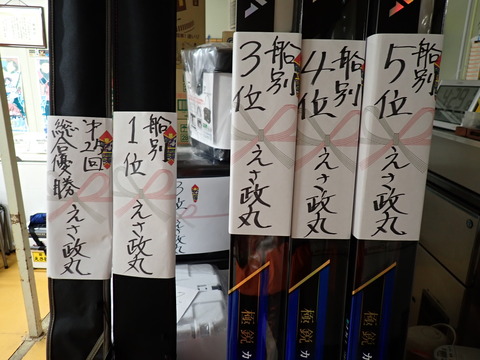 総合優勝
えさ政丸
船別
1位
えさ政丸
船別
3位
えさ政丸
船別
4位
えさ政丸
船別
5位
えさ政丸
極鋭 カ
極鋭 カ
極鋭 カ